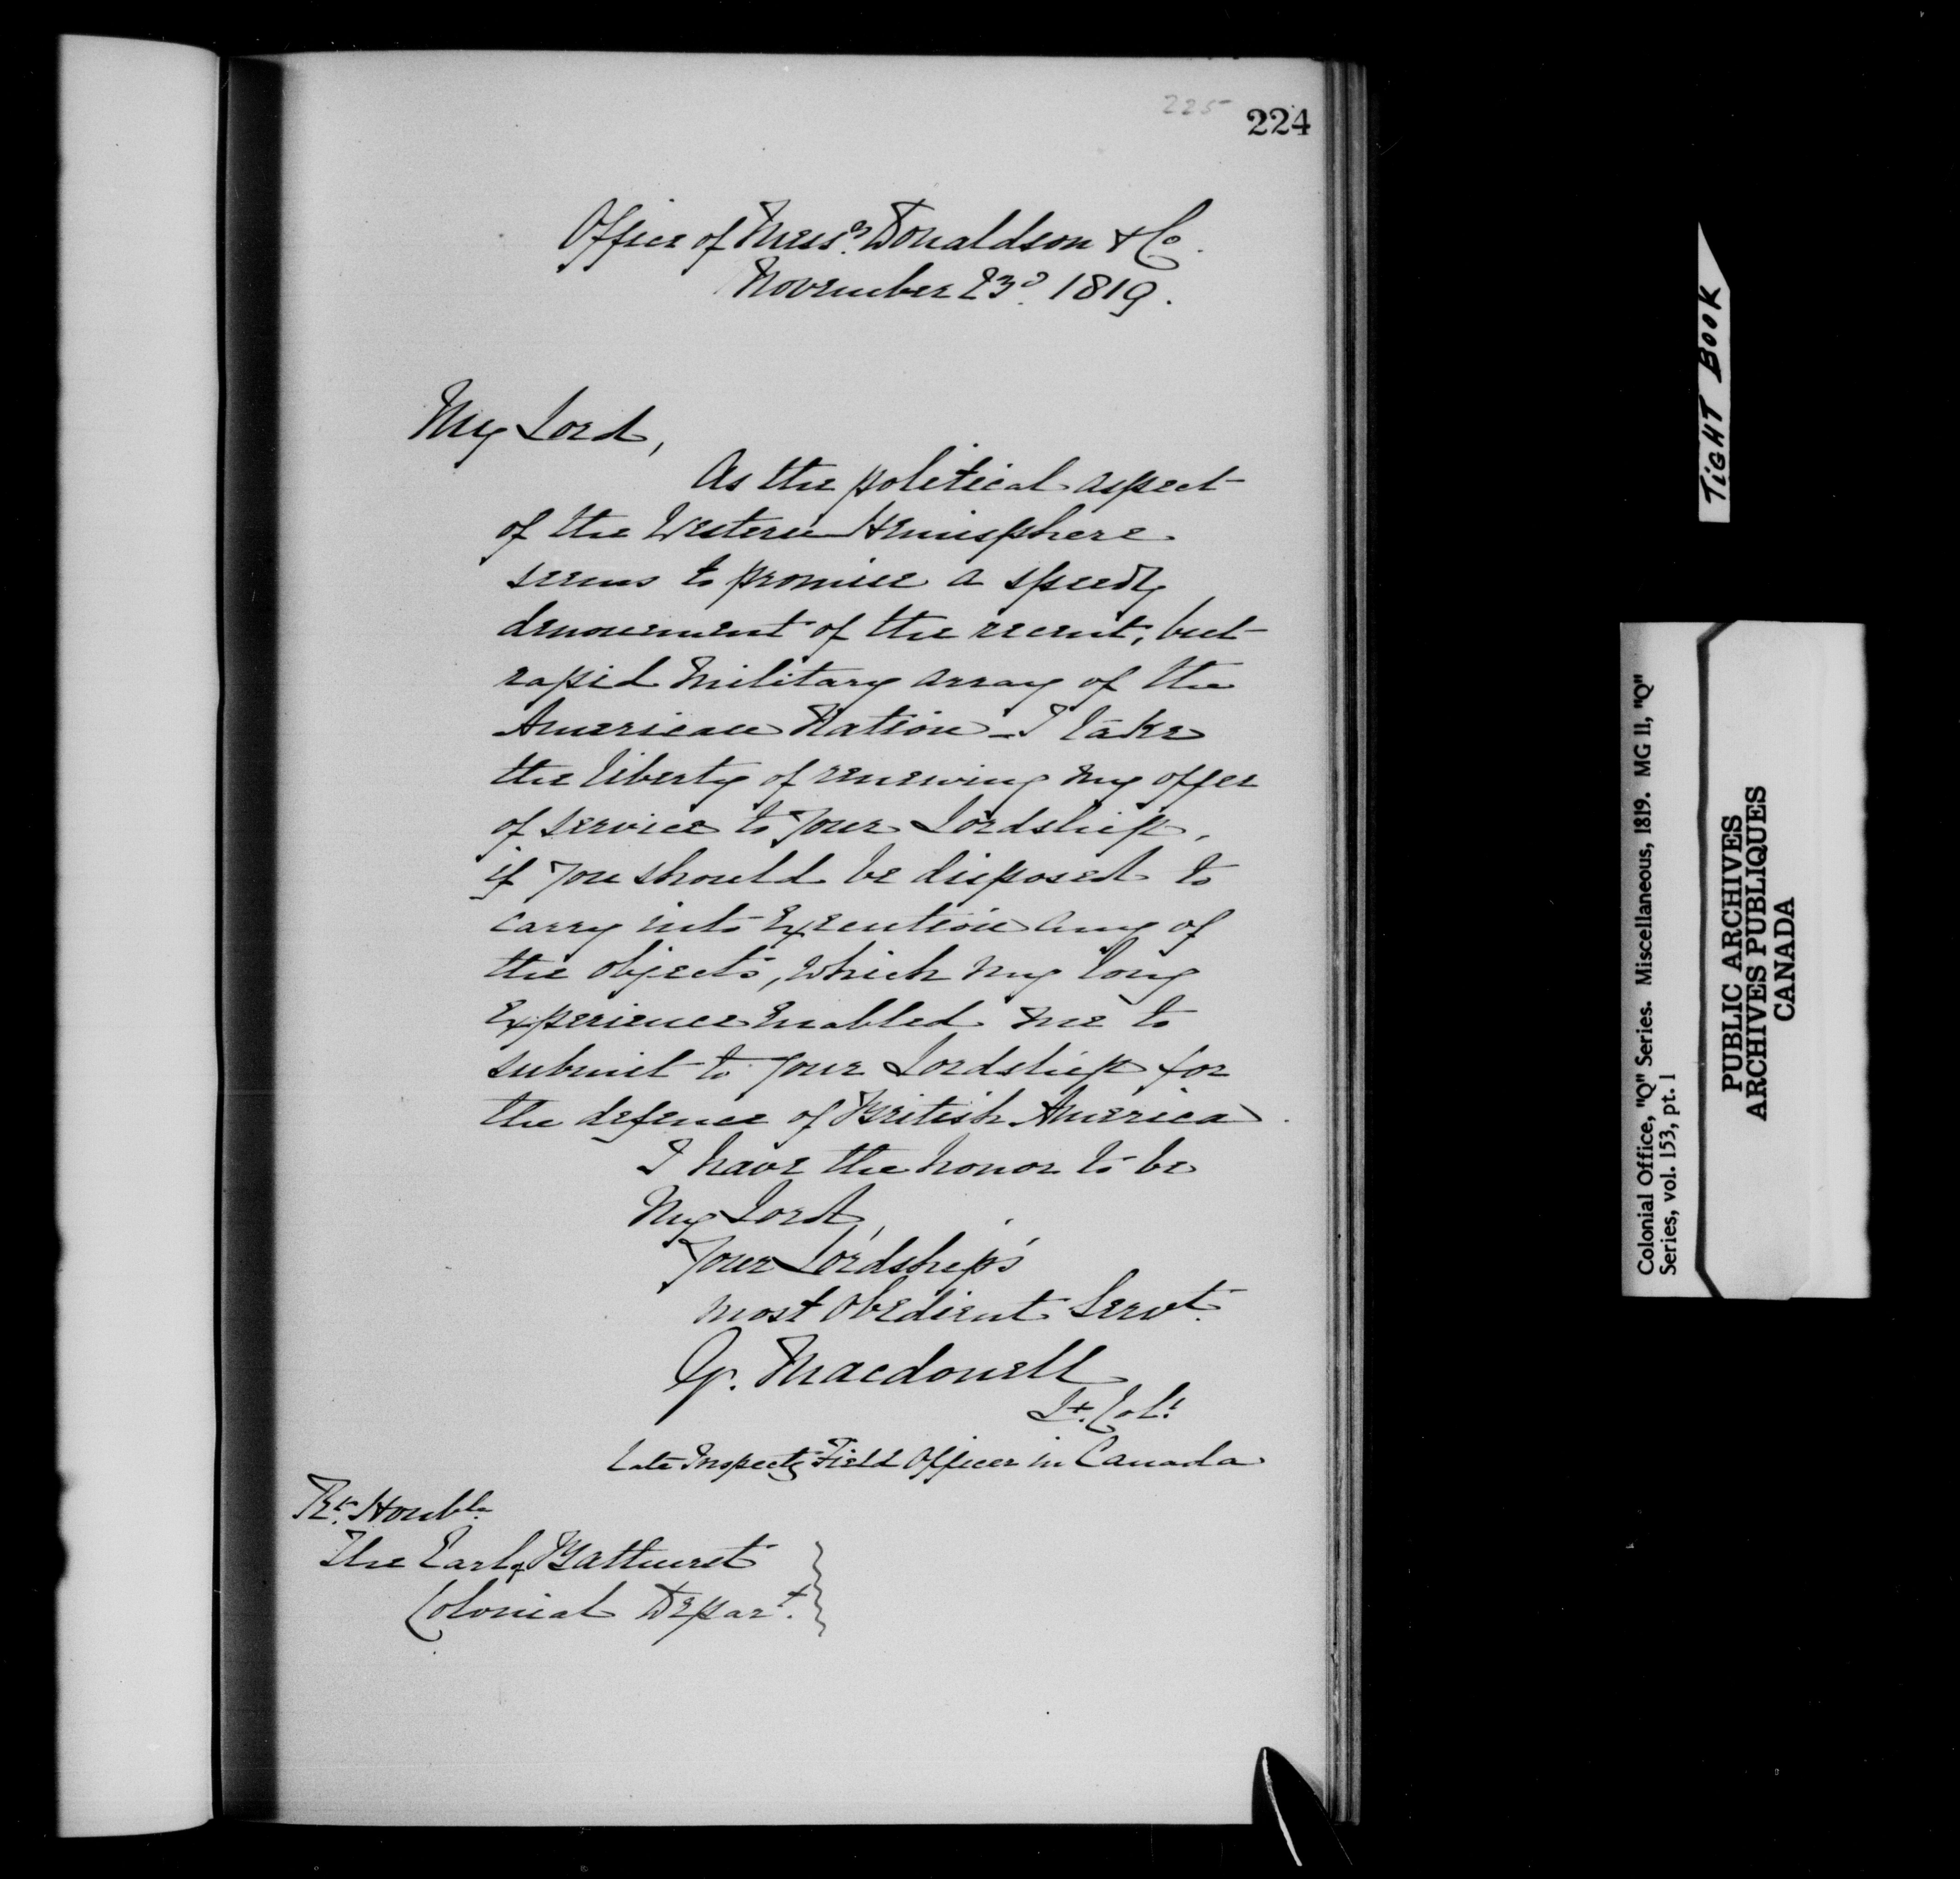 225
224
Office of Mess.rs Donaldson & Co.
November 23d. 1819.
My Lord,
As the political aspect
of the Western Hemisphere
seems to promise a speedy
denouement of the recent, but
rapid Military array of the
American Nation _ I take
the liberty of renewing my offer
of service to Your Lordship,
if you should be disposed to
carry into Execution any of
the objects, which my long
Experience Enabled me to
submit to Your Lordship for
the defence of British America.
I have the honor to be
My Lord,
Your Lordship's
most Obedient Servt.
G. Macdonell
Lt. Col.
Late Inspectg Field Officer in Canada
Rt. Honble.
The Earl of Bathurst
Colonial Depart.
TIGHT BOOK
Colonial Office, "Q" Series. Miscellaneous, 1819. MG 11, "Q"
Series, vol. 153, pt. 1
PUBLIC ARCHIVES
ARCHIVES PUBLIQUES
CANADA